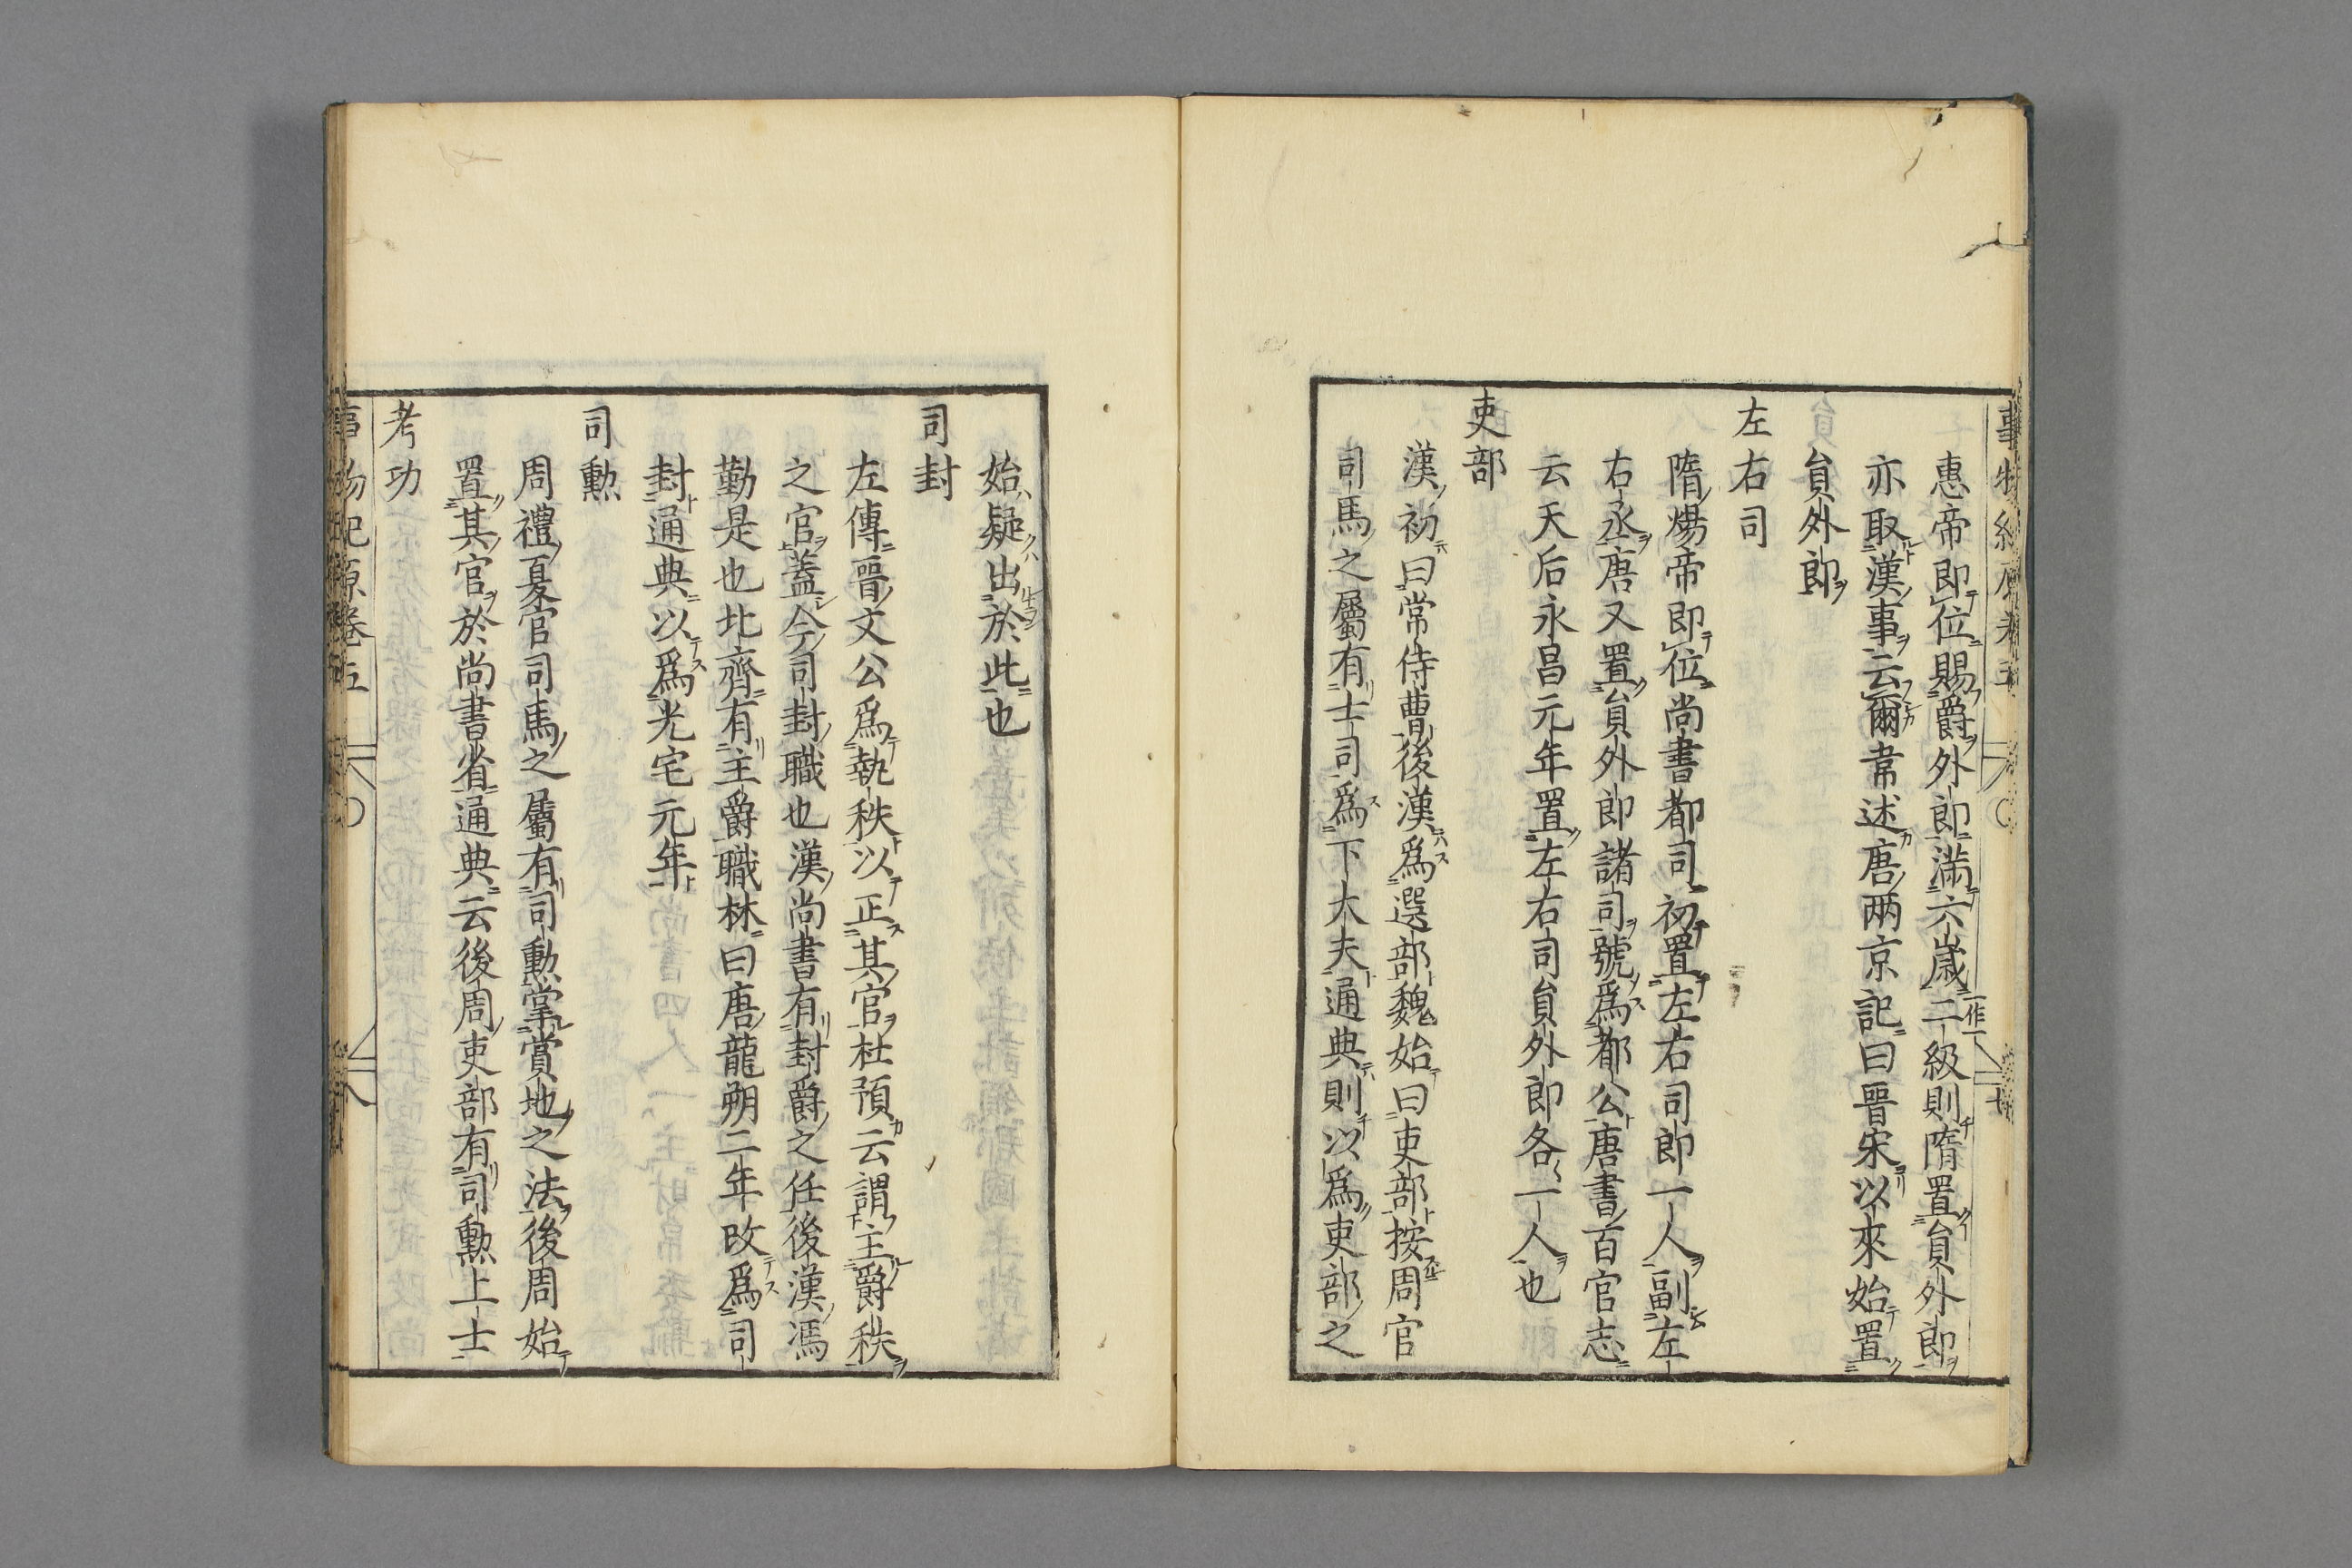 惠帝即位賜爵外郎滿六歲二級則隋置貟外郎
亦取漢事云爾韋述唐兩京記曰晉宋以來始置
貟外郎
左右司
隋煬帝即位尚書都司初置左右司郎一人副左
右丞唐又置貟外郎諸司號爲都公唐書百官志
云天后永昌元年置左右司貟外郎各一人也
吏部
漢初曰常侍曹後漢爲選部魏始曰吏部按周官
司馬之屬有士司爲下大夫通典則以爲吏部之
始疑出於此也
司封
左傳晉文公爲執秩以正其官杜預云謂主爵秩
之官蓋今司封職也漢尚書有封爵之任後漢馮
勤是也北齊有主爵職林曰唐龍朔二年改爲司
封通典以爲光宅元年
司勲
周禮夏官司馬之屬有司勲掌賞地之法後周始
置其官於尚書省通典云後周吏部有司勲上士
考功
事物紀原卷五